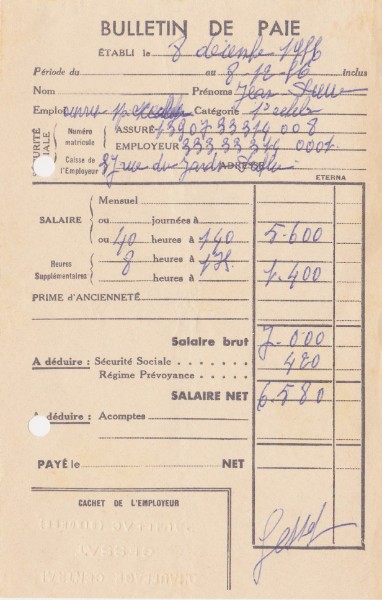 BULLETIN DE PAIE
ÉTABLI le 8 décembre 1956
Période du au 8-12-56 inclus
Nom Prénoms Jean
Emploi Catégorie 1º
SÉCURITÉ SOCIALE Numéro matricule ASSURÉ 13907 33314 008
EMPLOYEUR 333.33 314 0001
Caisse de l'Employeur 37 rue du ADRESSE
ETERNA
SALAIRE Mensuel
ou journées à
ou 40 heures à 140 5-600
Heures Supplémentaires 8 heures à 175 1-400
heures à
PRIME D'ANCIENNETÉ
Salaire brut 7-000
A déduire : Sécurité Sociale 420
Régime Prévoyance
SALAIRE NET 6.580
A déduire : Acomptes
PAYÉ le NET
CACHET DE L'EMPLOYEUR
GESSAT